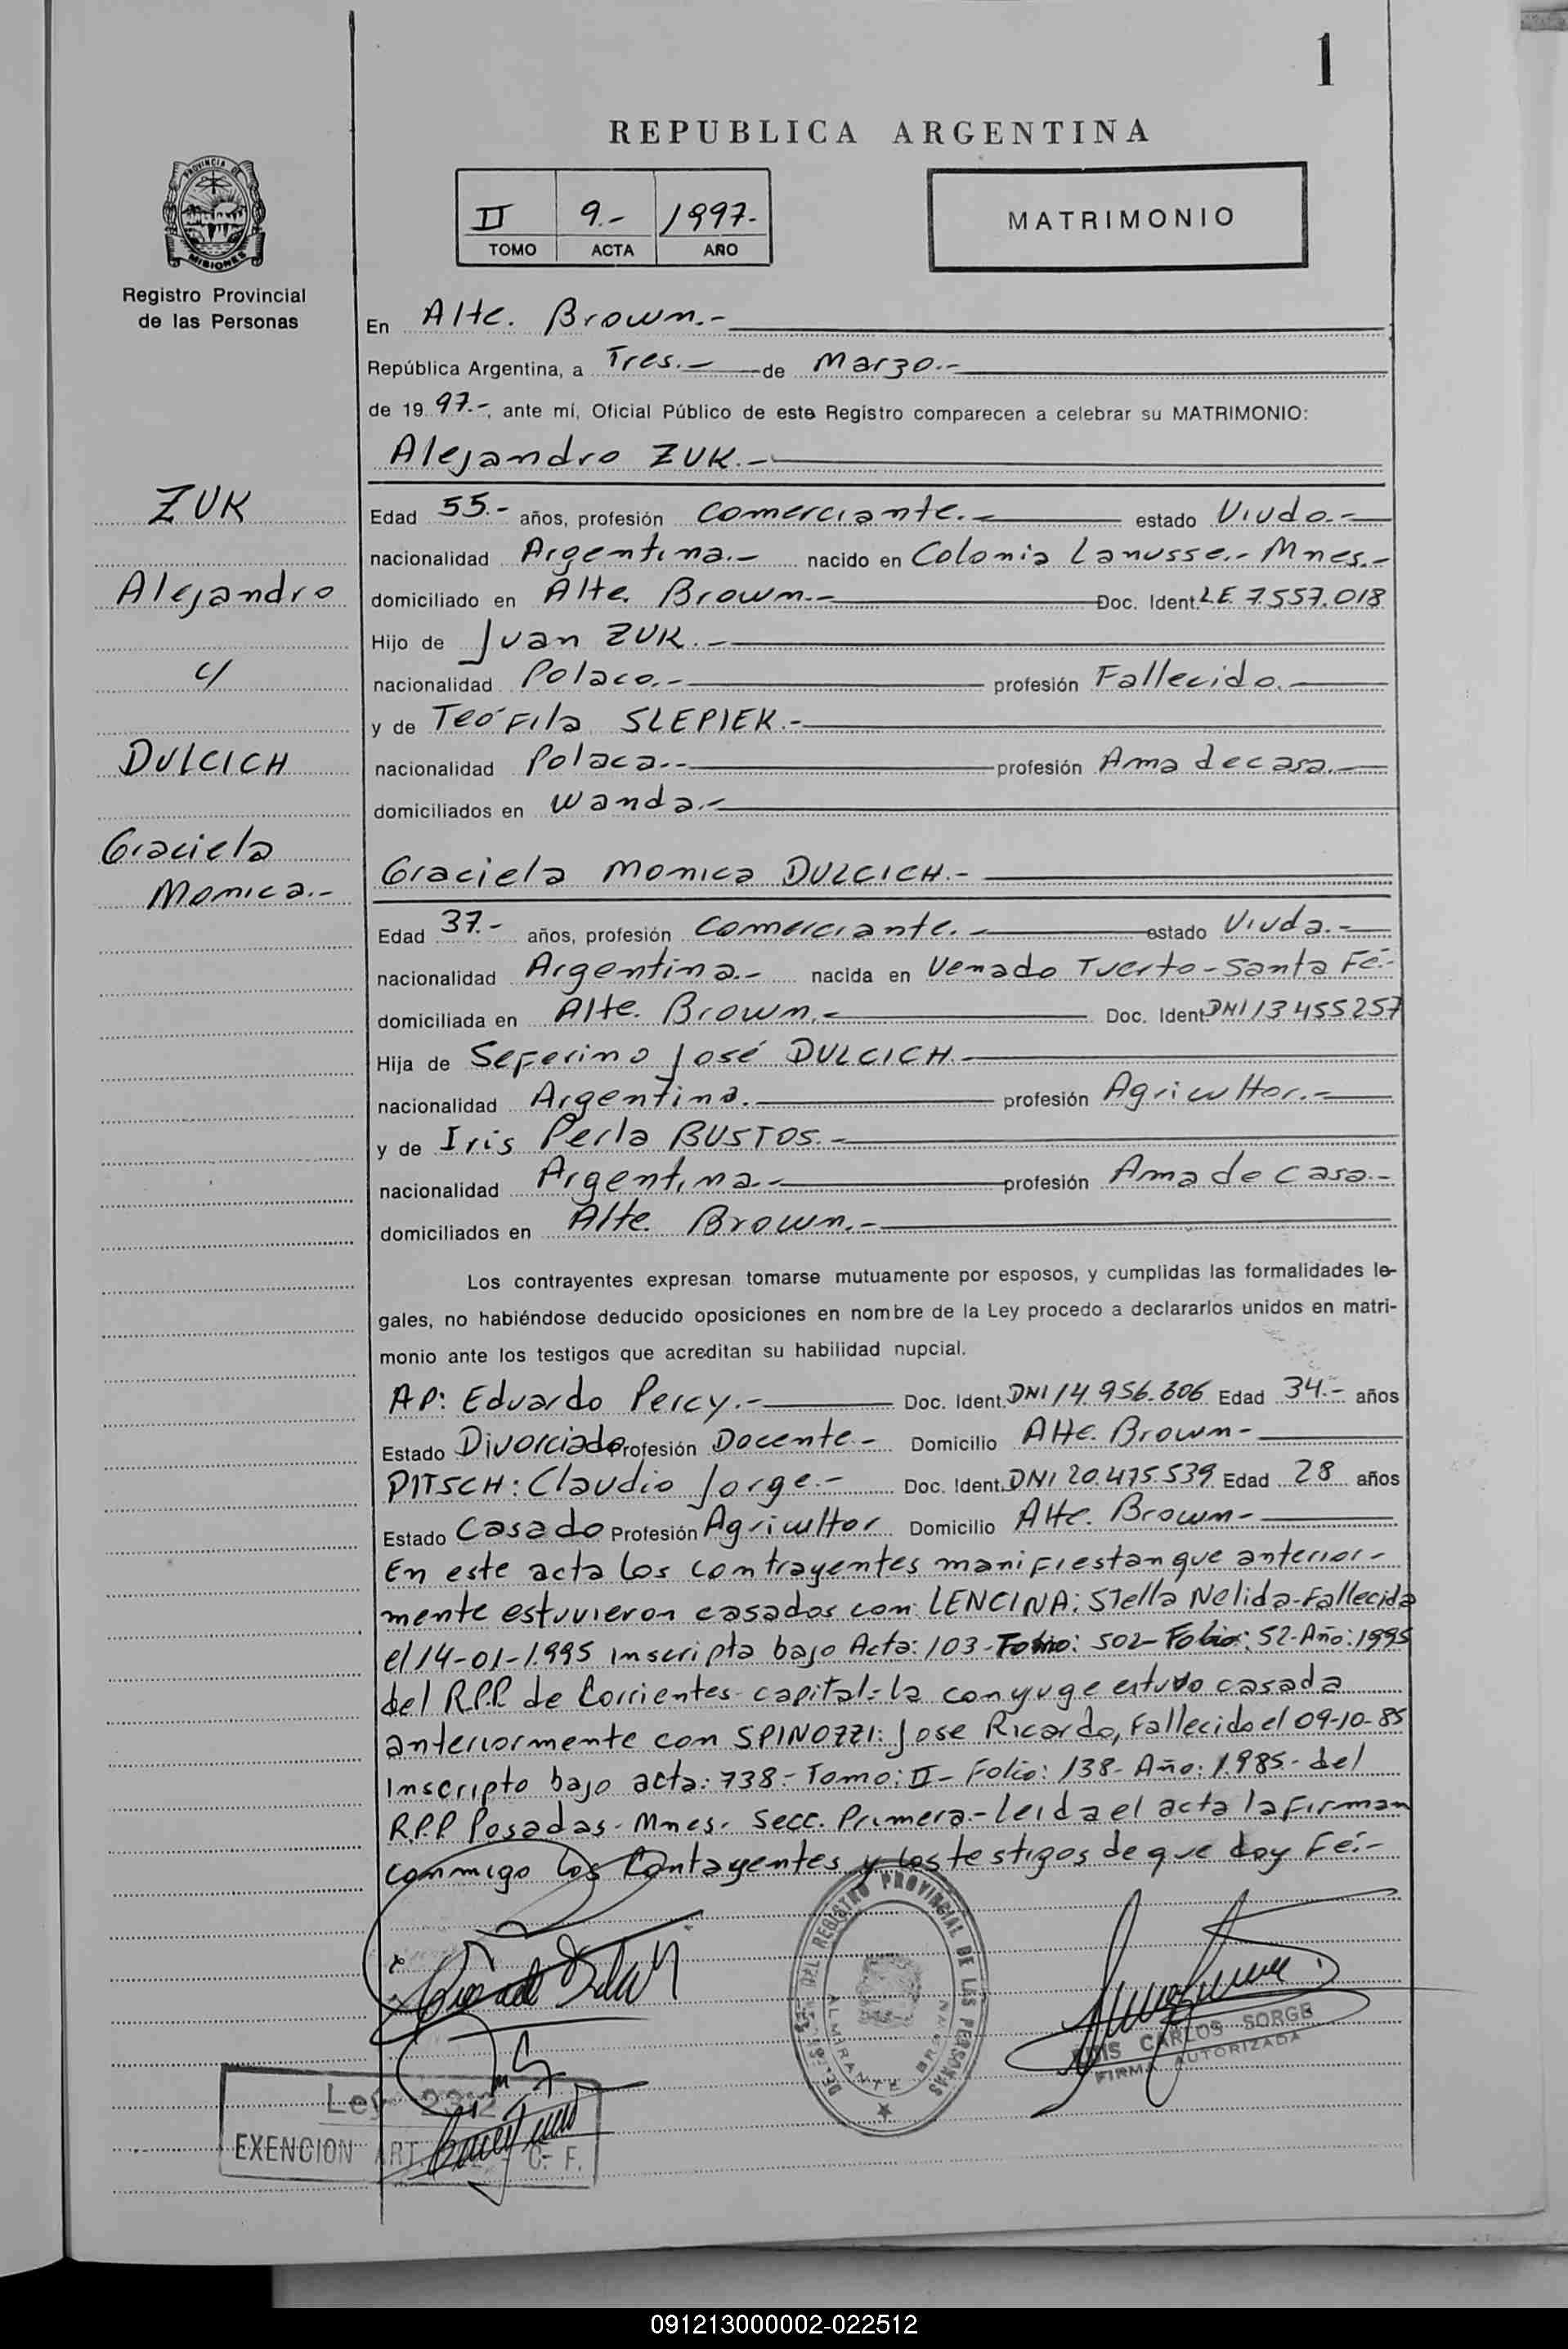 1
REPUBLICA ARGENTINA
PROVINCIA DE MISIONES
Registro Provincial
de las Personas
II 9.- 1997.-
TOMO ACTA AÑO
MATRIMONIO
En Alte. Brown.-
República Argentina, a Tres.- de Marzo.-
de 1997.-, ante mí, Oficial Público de este Registro comparecen a celebrar su MATRIMONIO:
Alejandro ZUK.-
ZUK
Alejandro
c/
DULCICH
Graciela
Monica.-
Edad 55.- años, profesión Comerciante.- estado Viudo.-
nacionalidad Argentina.- nacido en Colonia Lanusse.- Mnes.-
domiciliado en Alte. Brown.- Doc. Ident. LE 7.557.018
Hijo de Juan ZUK.-
nacionalidad Polaco.- profesión Fallecido.-
y de Teófila SLEPIEK.-
nacionalidad Polaca.- profesión Ama de casa.-
domiciliados en Wanda.-
Graciela Monica DULCICH.-
Edad 37.- años, profesión Comerciante.- estado Viuda.-
nacionalidad Argentina.- nacida en Venado Tuerto - Santa Fé.-
domiciliada en Alte. Brown.- Doc. Ident. DNI 13455257
Hija de Seferino José DULCICH.-
nacionalidad Argentino.- profesión Agricultor.-
y de Iris Perla BUSTOS.-
nacionalidad Argentina.- profesión Ama de casa.-
domiciliados en Alte. Brown.-
Los contrayentes expresan tomarse mutuamente por esposos, y cumplidas las formalidades le-
gales, no habiéndose deducido oposiciones en nombre de la Ley procedo a declararlos unidos en matri-
monio ante los testigos que acreditan su habilidad nupcial.
AP: Eduardo Percy.- Doc. Ident. DNI 14.956.606 Edad 34.- años
Estado Divorciado Profesión Docente.- Domicilio Alte. Brown-
PITSCH: Claudio Jorge.- Doc. Ident. DNI 20.475.539 Edad 28 años
Estado Casado Profesión Agricultor Domicilio Alte. Brown-
En este acta los contrayentes manifiestan que anterior-
mente estuvieron casados con: LENCINA; Stella Nelida-Fallecida
el 14-01-1.995 inscripta bajo Acta: 103-Tomo: 502-Folio: 52-Año: 1995
del R.P.P. de Corrientes- capital- la conyuge estuvo casada
anteriormente con SPINOZZI: Jose Ricardo, Fallecido el 09-10-85
Inscripto bajo acta: 738- Tomo: II- Folio: 138- Año: 1.985- del
R.P.P Posadas- Mnes. Secc. Primera- leida el acta la firman
conmigo los Contayentes y los testigos de que doy Fé.-
DEL REGISTRO PROVINCIAL DE LAS PERSONAS
ALMIRANTE BROWN
LUIS CARLOS SORGE
FIRMA AUTORIZADA
Ley 2312
EXENCION ART. C. F.
091213000002-022512